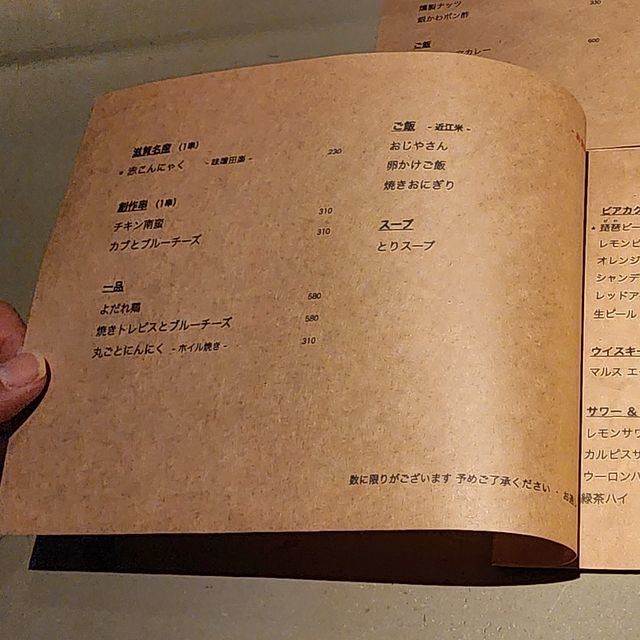 燻製ナッツ 330
銀かわポン酢
ご飯
カレー 600
滋賀名産 (1串)
* 赤こんにゃく - 味噌田楽 - 230
創作串 (1串)
チキン南蛮 310
カブとブルーチーズ 310
一品
よだれ鶏 580
焼きトレビスとブルーチーズ 580
丸ごとにんにく - ホイル焼き - 310
ご飯 - 近江米 -
おじやさん
卵かけご飯
焼きおにぎり
スープ
とりスープ
数に限りがございます 予めご了承ください ・ お通し
ビアカク
* 琵琶ビー
レモンビ
オレンジ
シャンデ
レッドア
生ビール
ウイスキー
マルス エ
サワー &
レモンサワ
カルピスサ
ウーロンハ
緑茶ハイ